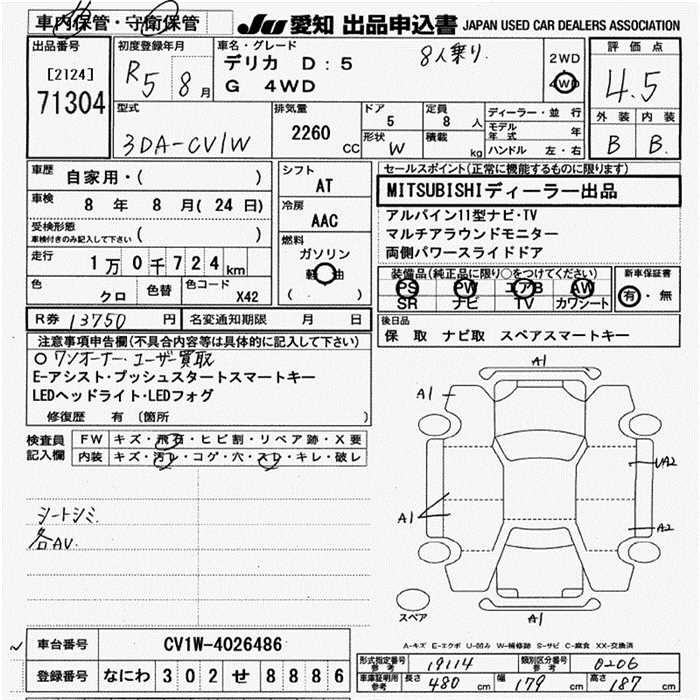 車内保管・守衛保管
JU 愛知 出品申込書 JAPAN USED CAR DEALERS ASSOCIATION
出品番号
[2124]
71304
初度登録年月
R5 8月
車名・グレード
デリカ D:5 8人乗り.
G 4WD
2WD
4WD
評価点
4.5
外装 内装
B B.
型式
3DA-CV1W
排気量
2260 CC
ドア
5
定員
8 人
形状 W
積載 kg
ディーラー・並行
モデル年式 年
ハンドル 左・右
車歴 自家用・( )
車検 8年 8月(24日)
受検形態
車検付きのみ記入して下さい ( )
走行 1万0千724km
色 クロ
色替
色コード X42
シフト
AT
冷房
AAC
燃料
ガソリン
軽油
( . )
R券 13750 円
名変通知期限 月 日
セールスポイント(正常に機能するものに限ります)
MITSUBISHIディーラー出品
アルパイン11型ナビ・TV
マルチアラウンドモニター
両側パワースライドドア
装備品(純正品に限り○をつけてください)
PS PW エアB AW
SR ナビ TV カワシート
新車保証書
有・無
後日品
保 取 ナビ取 スペアスマートキー
注意事項申告欄(不具合内容等は具体的に記入して下さい)
○ワンオーナー・ユーザー買取
E-アシスト・プッシュスタートスマートキー
LEDヘッドライト・LEDフォグ
修復歴 有 (箇所 )
検査員記入欄
FW キズ・飛石・ヒビ割・リペア跡・X要
内装 キズ・汚レ・コゲ・穴・スレ・キレ・破レ
シートシミ
各AV.
A1
A1
UA2
A1
A2
スペア
A1
A-キズ E-エクボ U-凹み W-補修跡 S-サビ C-腐食 XX-交換済
車台番号 CV1W-4026486
登録番号 なにわ 302 せ 8886
形式指定番号 参考 19114
類別区分番号 参考 0206
車庫証明用 参考 長さ 480 cm 幅 179 cm 高さ 187 cm